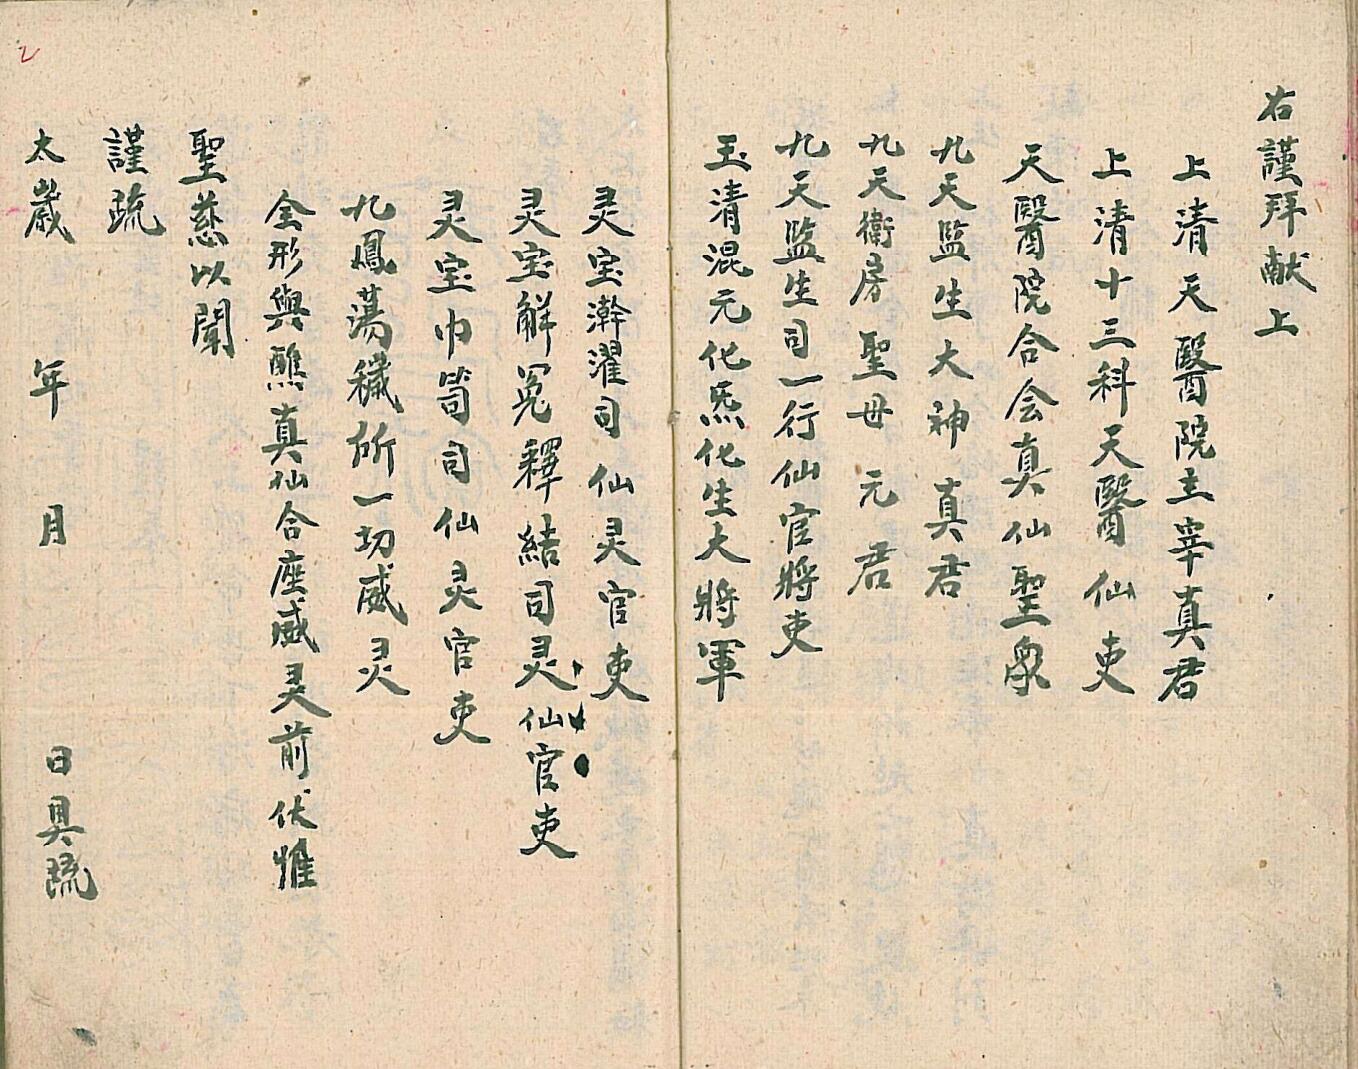 右謹拜献上
上清天醫院主宰真君
上清十三科天醫仙吏
天醫院合会真仙聖衆
九天監生大神真君
九天衛房聖母元君
九天監生司一行仙官將吏
玉清混元化炁化生大將軍
灵宝澣濯司仙灵官吏
灵宝解冤釋結司灵仙官吏
灵宝巾笥司仙灵官吏
九鳳蕩穢所一切威灵
全形與醮真仙合座威灵前伏惟
聖慈以聞
謹疏
太歲 年 月 日具疏
2